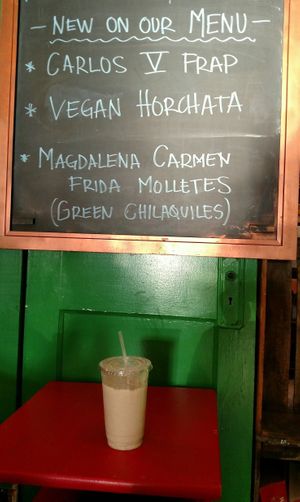 - NEW ON OUR MENU -
* CARLOS V FRAP
* VEGAN HORCHATA
* MAGDALENA CARMEN
FRIDA MOLLETES
(GREEN CHILAQUILES)